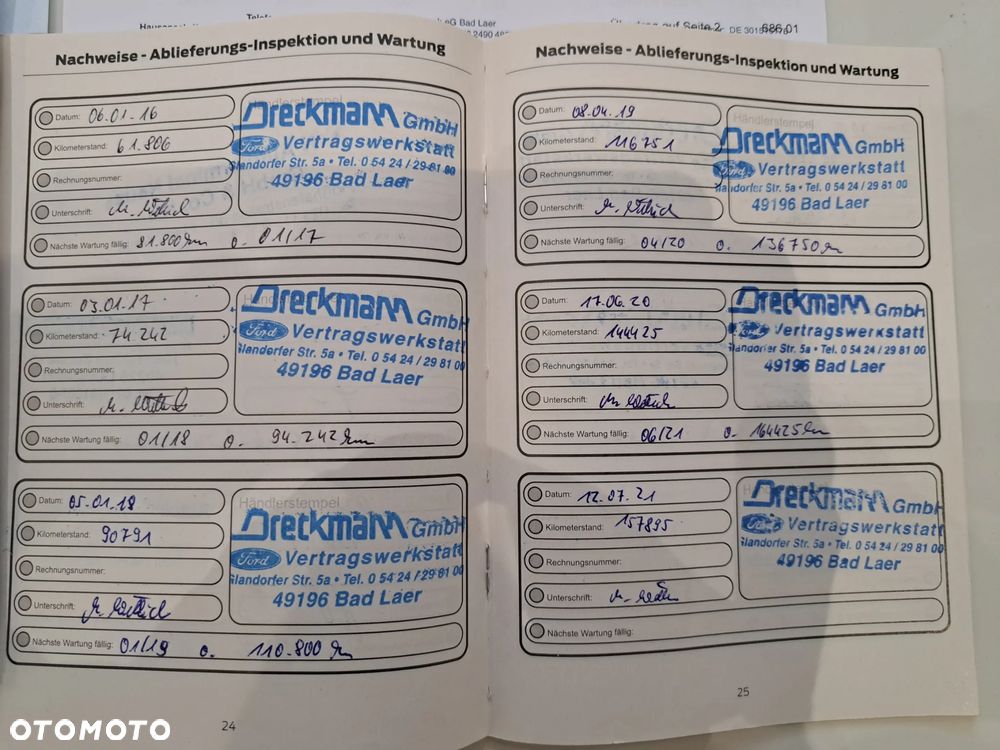 eG Bad Laer
686,01
Nachweise - Ablieferungs-Inspektion und Wartung
Datum: 06.01.16
Kilometerstand: 61.806
Rechnungsnummer:
Unterschrift:
Nächste Wartung fällig: 81.800km o. 01/17
Händlerstempel
Dreckmann GmbH
Ford Vertragswerkstatt
Glandorfer Str. 5a • Tel. 0 54 24 / 29 81 00
49196 Bad Laer
Datum: 03.01.17
Kilometerstand: 74 242
Rechnungsnummer:
Unterschrift:
Nächste Wartung fällig: 01/18 o. 94.242km
Dreckmann GmbH
Ford Vertragswerkstatt
Glandorfer Str. 5a • Tel. 0 54 24 / 29 81 00
49196 Bad Laer
Datum: 05.01.18
Kilometerstand: 90791
Rechnungsnummer:
Unterschrift:
Nächste Wartung fällig: 01/19 o. 110.800 km
Händlerstempel
Dreckmann GmbH
Ford Vertragswerkstatt
Glandorfer Str. 5a • Tel. 0 54 24 / 29 81 00
49196 Bad Laer
24
Nachweise - Ablieferungs-Inspektion und Wartung
Datum: 08.04.19
Kilometerstand: 116751
Rechnungsnummer:
Unterschrift:
Nächste Wartung fällig: 04/20 o. 136750km
Händlerstempel
Dreckmann GmbH
Ford Vertragswerkstatt
Glandorfer Str. 5a • Tel. 0 54 24 / 29 81 00
49196 Bad Laer
Datum: 17.06.20
Kilometerstand: 144425
Rechnungsnummer:
Unterschrift:
Nächste Wartung fällig: 06/21 o. 164425km
Dreckmann GmbH
Ford Vertragswerkstatt
Glandorfer Str. 5a • Tel. 0 54 24 / 29 81 00
49196 Bad Laer
Datum: 12.07.21
Kilometerstand: 157895
Rechnungsnummer:
Unterschrift:
Nächste Wartung fällig:
Dreckmann GmbH
Ford Vertragswerkstatt
Glandorfer Str. 5a • Tel. 0 54 24 / 29 81 00
49196 Bad Laer
25
OTOMOTO